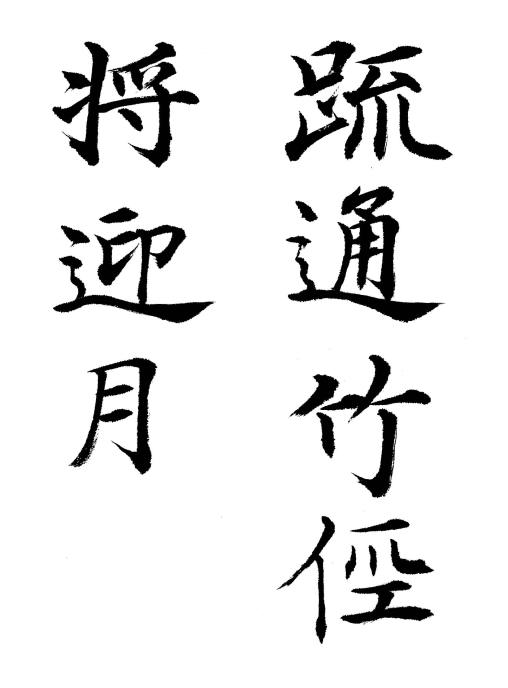 疏通竹俓
将迎月